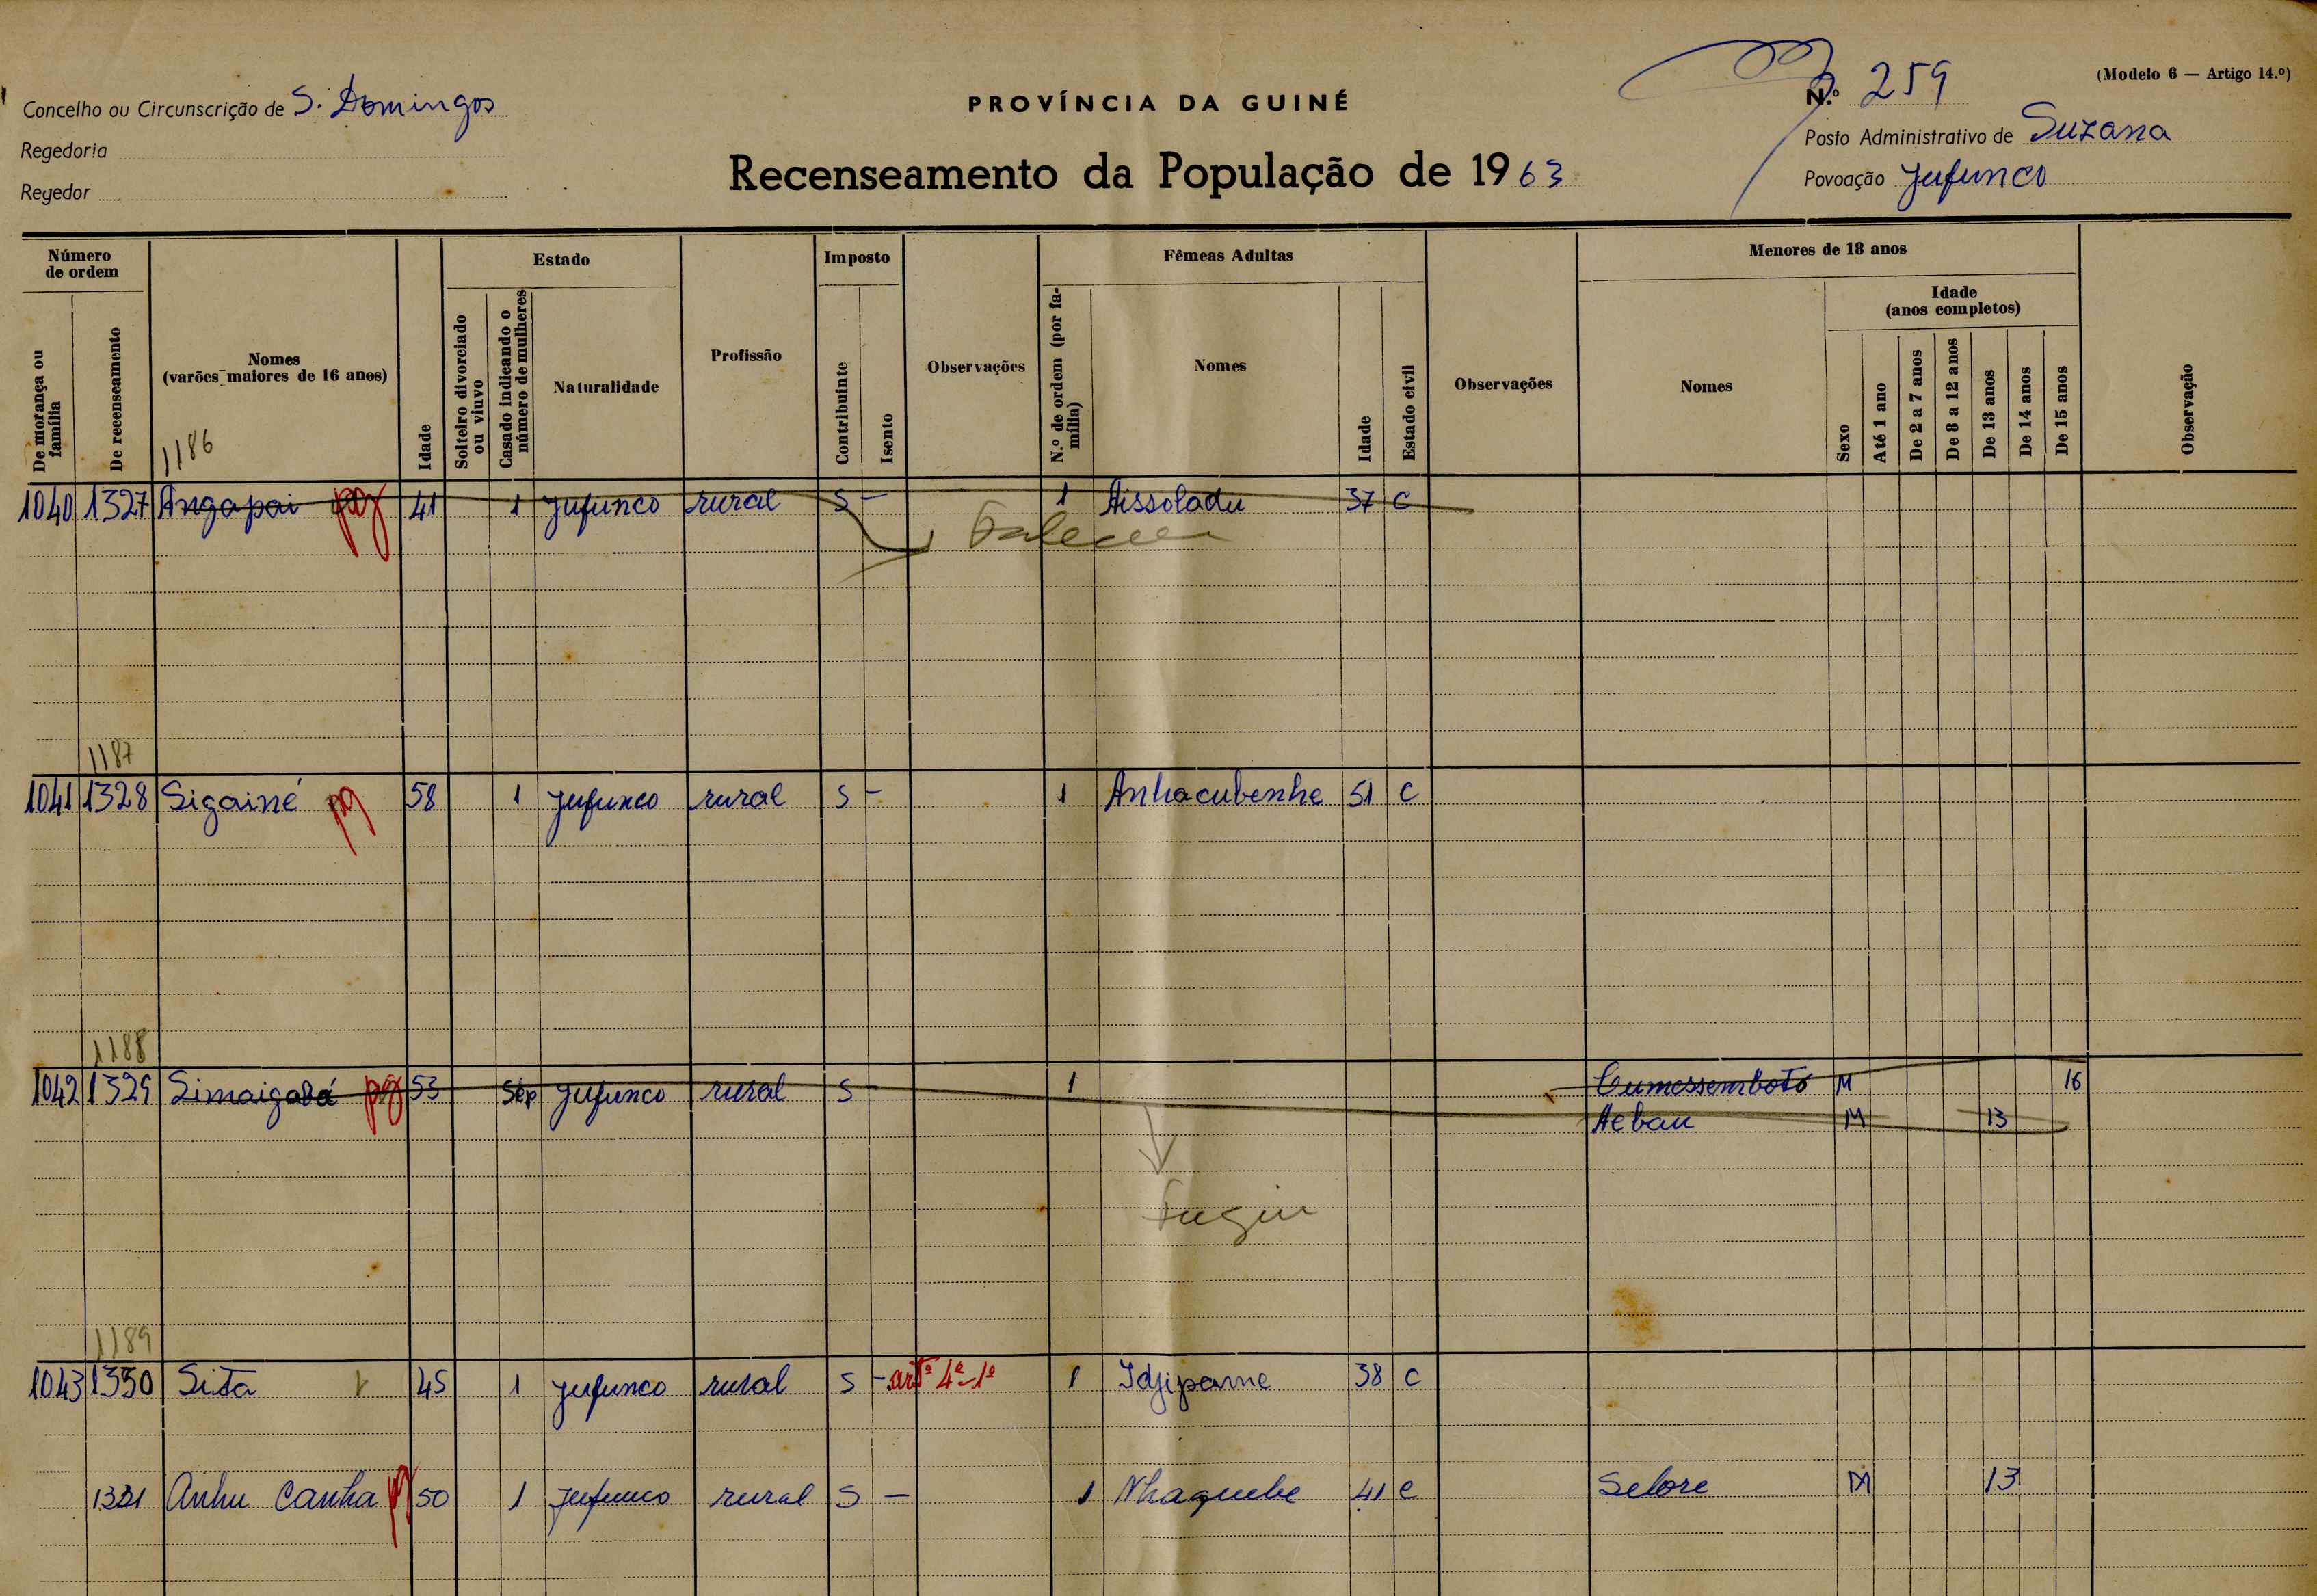 (Modelo 6 — Artigo 14.º)
Concelho ou Circunscrição de S. Domingos
PROVÍNCIA DA GUINÉ
N.º 259
Regedoria
Posto Administrativo de Suzana
Regedor
Recenseamento da População de 1963
Povoação Jufunco
Número de ordem
Estado
Imposto
Fêmeas Adultas
Menores de 18 anos
De morança ou família
De recenseamento
Nomes (varões maiores de 16 anos)
Idade
Solteiro divorciado ou viuvo
Casado indicando o número de mulheres
Naturalidade
Profissão
Contribuinte
Isento
Observações
N.º de ordem (por família)
Nomes
Idade
Estado civil
Observações
Nomes
Idade (anos completos)
Sexo
Até 1 ano
De 2 a 7 anos
De 8 a 12 anos
De 13 anos
De 14 anos
De 15 anos
Observação
1186
1040 1327 Angapai pg 41 1 Jufunco rural S - 1 Aissoladu 37 C
Faleceu
1187
1041 1328 Sigainé pg 58 1 Jufunco rural S - 1 Anhacubenhe 51 C
1188
1042 1329 Simaigabá pg 53 Sep Jufunco rural S 1 Cumessemboto M 16
Aebau M 13
Fugiu
1189
1043 1330 Sita 45 1 Jufunco rural S - artº 4º-1º 1 Idjipame 38 C
1331 Anhu Canha pg 50 1 Jufunco rural S - 1 Nhaquebe 41 C Selore M 13